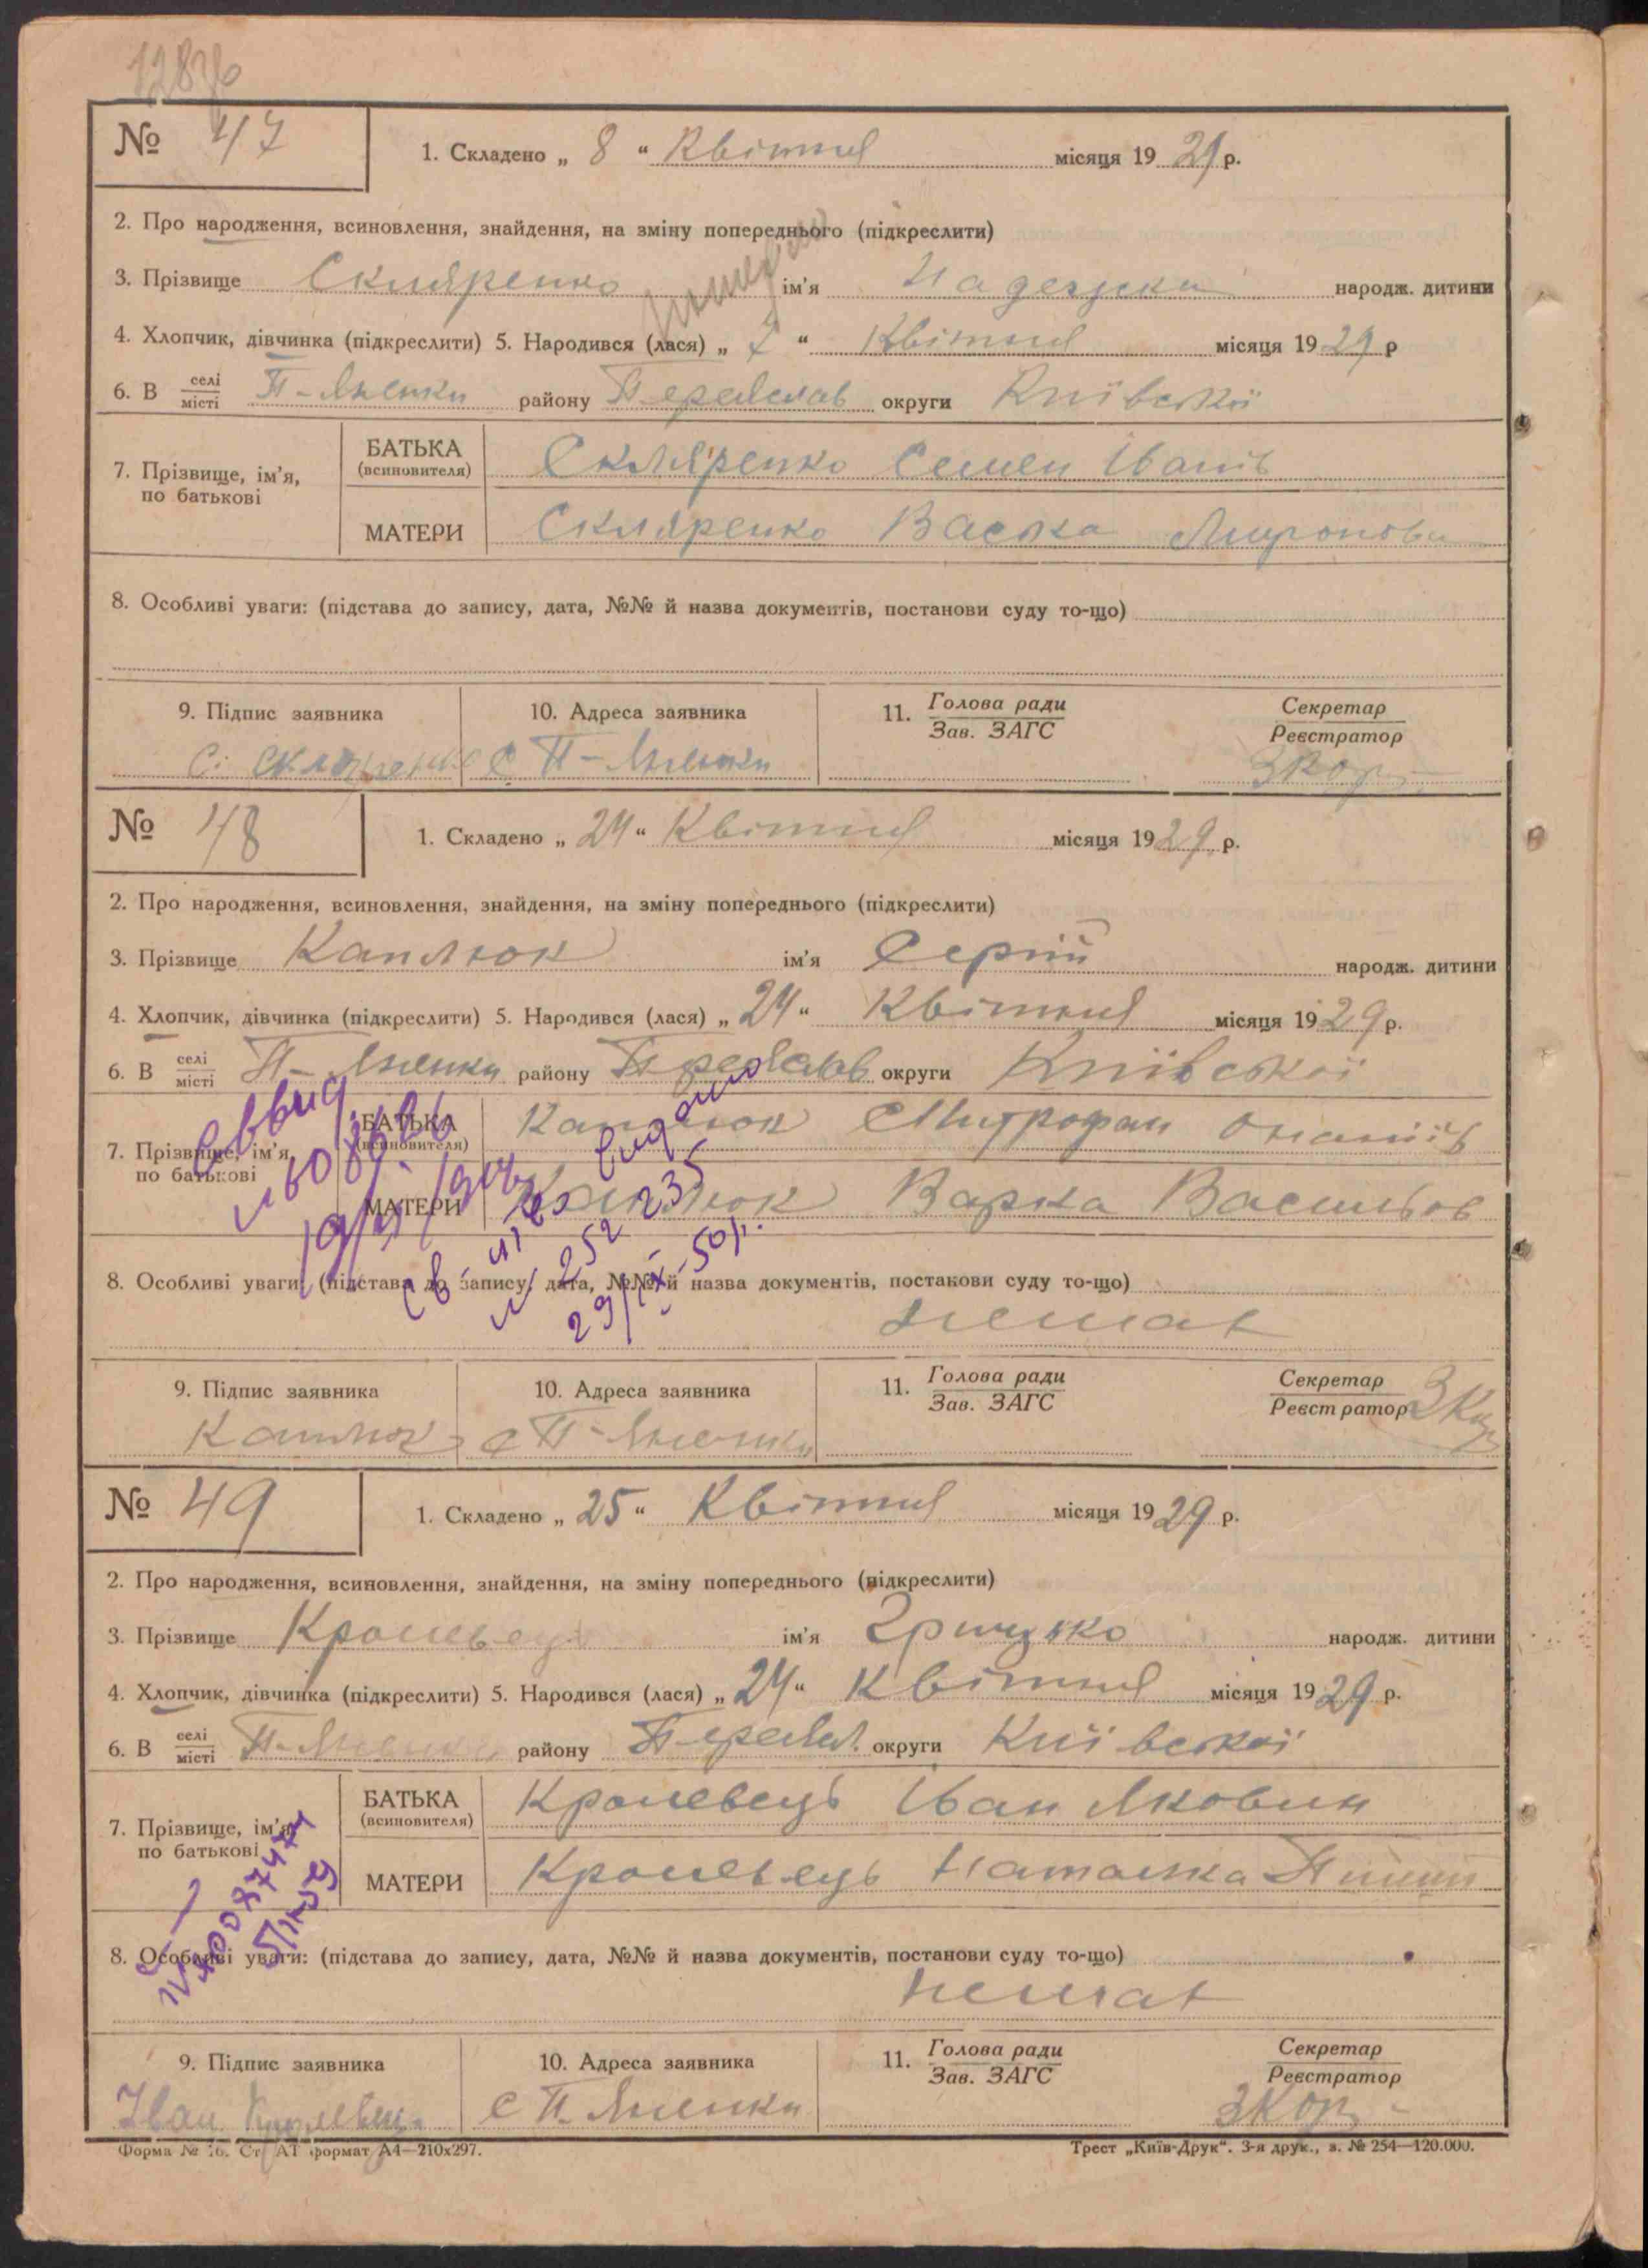 № 47
1. Складено „ 8 “ Квітня місяця 1929 р.
2. Про народження, всиновлення, знайдення, на зміну попереднього (підкреслити)
3. Прізвище Скляренко ім'я Надежка народж. дитини
4. Хлопчик, дівчинка (підкреслити) 5. Народився (лася) „ 7 “ Квітня місяця 1929 р
6. В селі/місті П-Яненки району Переяслав округи Київської
7. Прізвище, ім'я, по батькові
БАТЬКА (всиновителя) Скляренко Семен Іванів
МАТЕРИ Скляренко Васька Миронова
8. Особливі уваги: (підстава до запису, дата, №№ й назва документів, постанови суду то-що)
9. Підпис заявника 10. Адреса заявника 11. Голова ради/Зав. ЗАГС Секретар/Реєстратор
С. Скляренко с П-Яненки
№ 48
1. Складено „ 24 “ Квітня місяця 1929 р.
2. Про народження, всиновлення, знайдення, на зміну попереднього (підкреслити)
3. Прізвище Каплюк ім'я Сергій народж. дитини
4. Хлопчик, дівчинка (підкреслити) 5. Народився (лася) „ 24 “ Квітня місяця 1929 р.
6. В селі/місті П-Яненки району Переяслав округи Київської
7. Прізвище, ім'я, по батькові
БАТЬКА (всиновителя) Каплюк Митрофан Ананіїв
МАТЕРИ Каплюк Варка Васильов
видано
29/ІХ-50р.
8. Особливі уваги: (підстава до запису, дата, №№ й назва документів, постанови суду то-що)
немає
9. Підпис заявника 10. Адреса заявника 11. Голова ради/Зав. ЗАГС Секретар/Реєстратор
Каплюк с П-Яненки
№ 49
1. Складено „ 25 “ Квітня місяця 1929 р.
2. Про народження, всиновлення, знайдення, на зміну попереднього (підкреслити)
3. Прізвище Кролевець ім'я Грицько народж. дитини
4. Хлопчик, дівчинка (підкреслити) 5. Народився (лася) „ 24 “ Квітня місяця 1929 р.
6. В селі/місті П-Яненки району Переясл. округи Київської
7. Прізвище, ім'я, по батькові
БАТЬКА (всиновителя) Кролевець Іван Якович
МАТЕРИ Кролевець Наталка
8. Особливі уваги: (підстава до запису, дата, №№ й назва документів, постанови суду то-що)
немає
9. Підпис заявника 10. Адреса заявника 11. Голова ради/Зав. ЗАГС Секретар/Реєстратор
Іван Кролевець с П-Яненки
Форма № 16. Ст. АТ формат А4—210х297.
Трест „Київ-Друк“. 3-я друк., з. № 254—120.000.